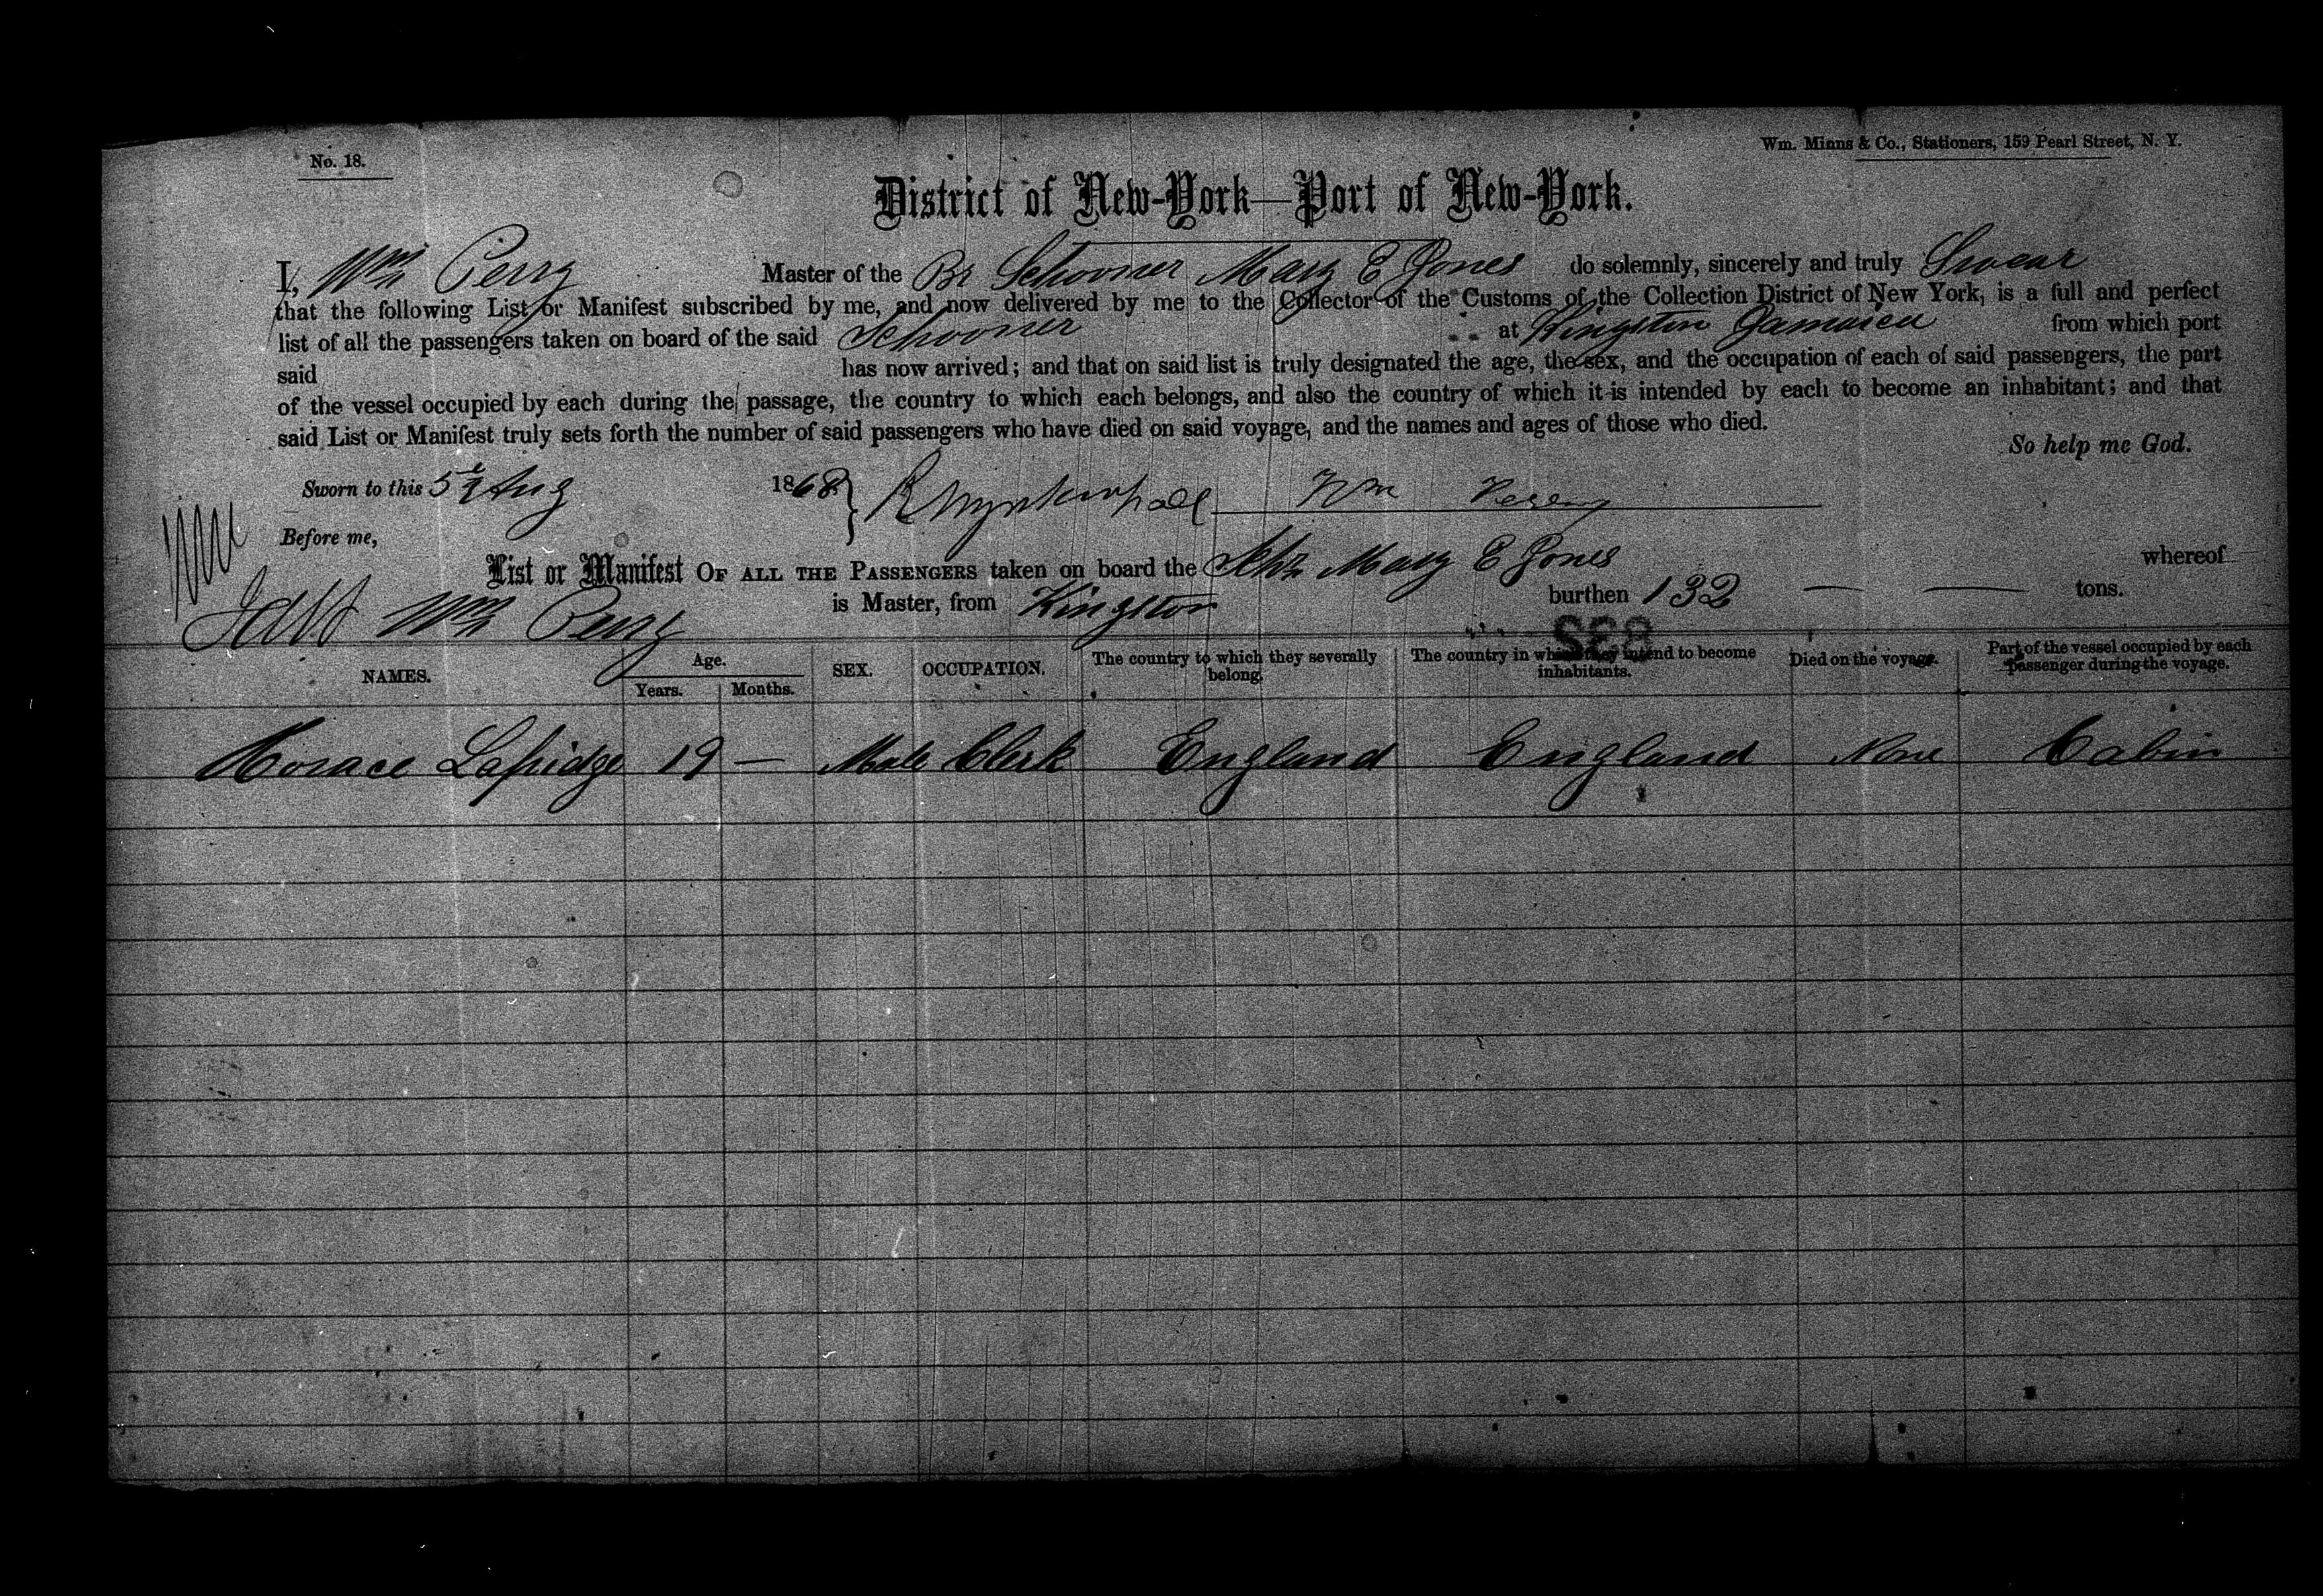 No. 18.
Wm. Minns & Co., Stationers, 159 Pearl Street, N. Y.
District of New-York—Port of New-York.
I, Wm Perry Master of the Br Schooner Mary E Jones do solemnly, sincerely and truly Swear
that the following List or Manifest subscribed by me, and now delivered by me to the Collector of the Customs of the Collection District of New York, is a full and perfect
list of all the passengers taken on board of the said Schooner at Kingston Jamaica from which port
said has now arrived; and that on said list is truly designated the age, the sex, and the occupation of each of said passengers, the part
of the vessel occupied by each during the passage, the country to which each belongs, and also the country of which it is intended by each to become an inhabitant; and that
said List or Manifest truly sets forth the number of said passengers who have died on said voyage, and the names and ages of those who died.
So help me God.
Sworn to this 5th Aug 1868 Wm Perry
Before me,
List or Manifest OF ALL THE PASSENGERS taken on board the Schr Mary E Jones whereof
Wm Perry is Master, from Kingston burthen 132 tons.
NAMES. Age. Years. Months. SEX. OCCUPATION. The country to which they severally belong. The country in which they intend to become inhabitants. Died on the voyage. Part of the vessel occupied by each passenger during the voyage.
Horace Lapidge 19 — Male Clerk England England None Cabin